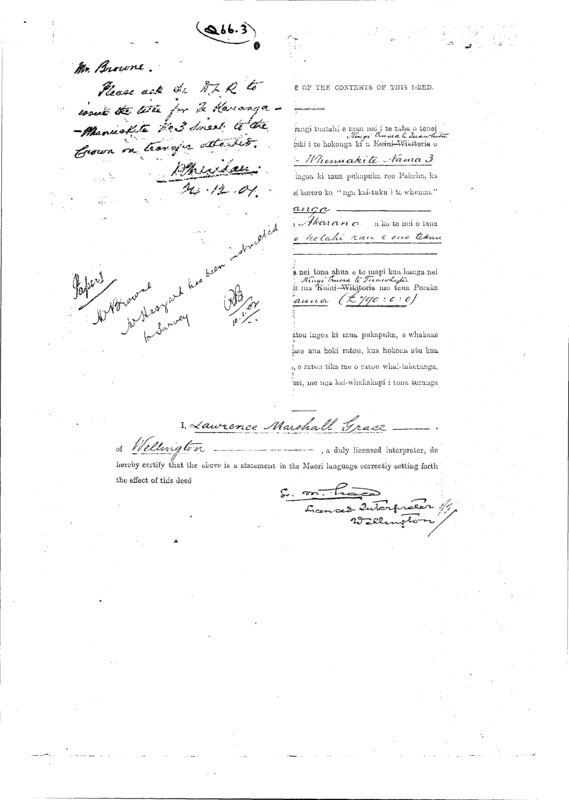 (266.3)
Mr Browne.
Please ask the D L R to
issue the title for Te Karanga -
- Whenuakite No 3 direct to the
Crown on transfer attached.
12.01.
Papers
Mr Browne
Mr Hazzard has been instructed
to survey
10.1.02
E OF THE CONTENTS OF THIS DEED.
rangi tuatahi e mau nei i te taha o tenei
Kingi Eruera te Tuawhitu
tuki i te hokonga ki a Kuini Wikitoria o
- Whenuakite Nama 3
ingoa ki taua pukapuka reo Pakeha, ka
si korero ko "nga kai-tuku i te whenua."
anga
, Akarana a ko te nei o taua
e kotahi rau e ono tekau
a nei tona ahua e te mapi kua hanga nei
Kingi Eruera te Tuawhitu
a mo Kuini Wikitoria mo taua Poraka
auna (£790:0:0)
atou ingoa ki taua pukapuka, e whakaae
ana hoki ratou, kua hokona atu kua
, o ratou tika me o ratou whai-taketanga,
uri, me nga kai-whakakapi i tona turanga
I, Lawrence Marshall Grace,
of Wellington, a duly licensed interpreter, do
hereby certify that the above is a statement in the Maori language correctly setting forth
the effect of this deed
L. M. Grace
Licensed Interpreter
Wellington